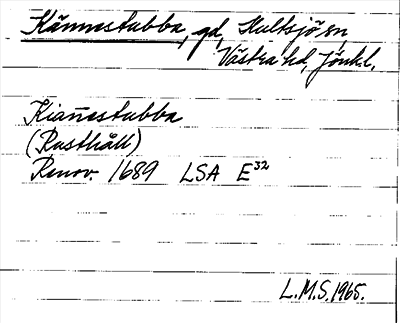 Kännestubba, gd, Hultsjö sn,
Västra hd, Jönkl.
Kian̄estubba
(Rusthåll)
Renov. 1689 LSA E32
L.M.S. 1965.